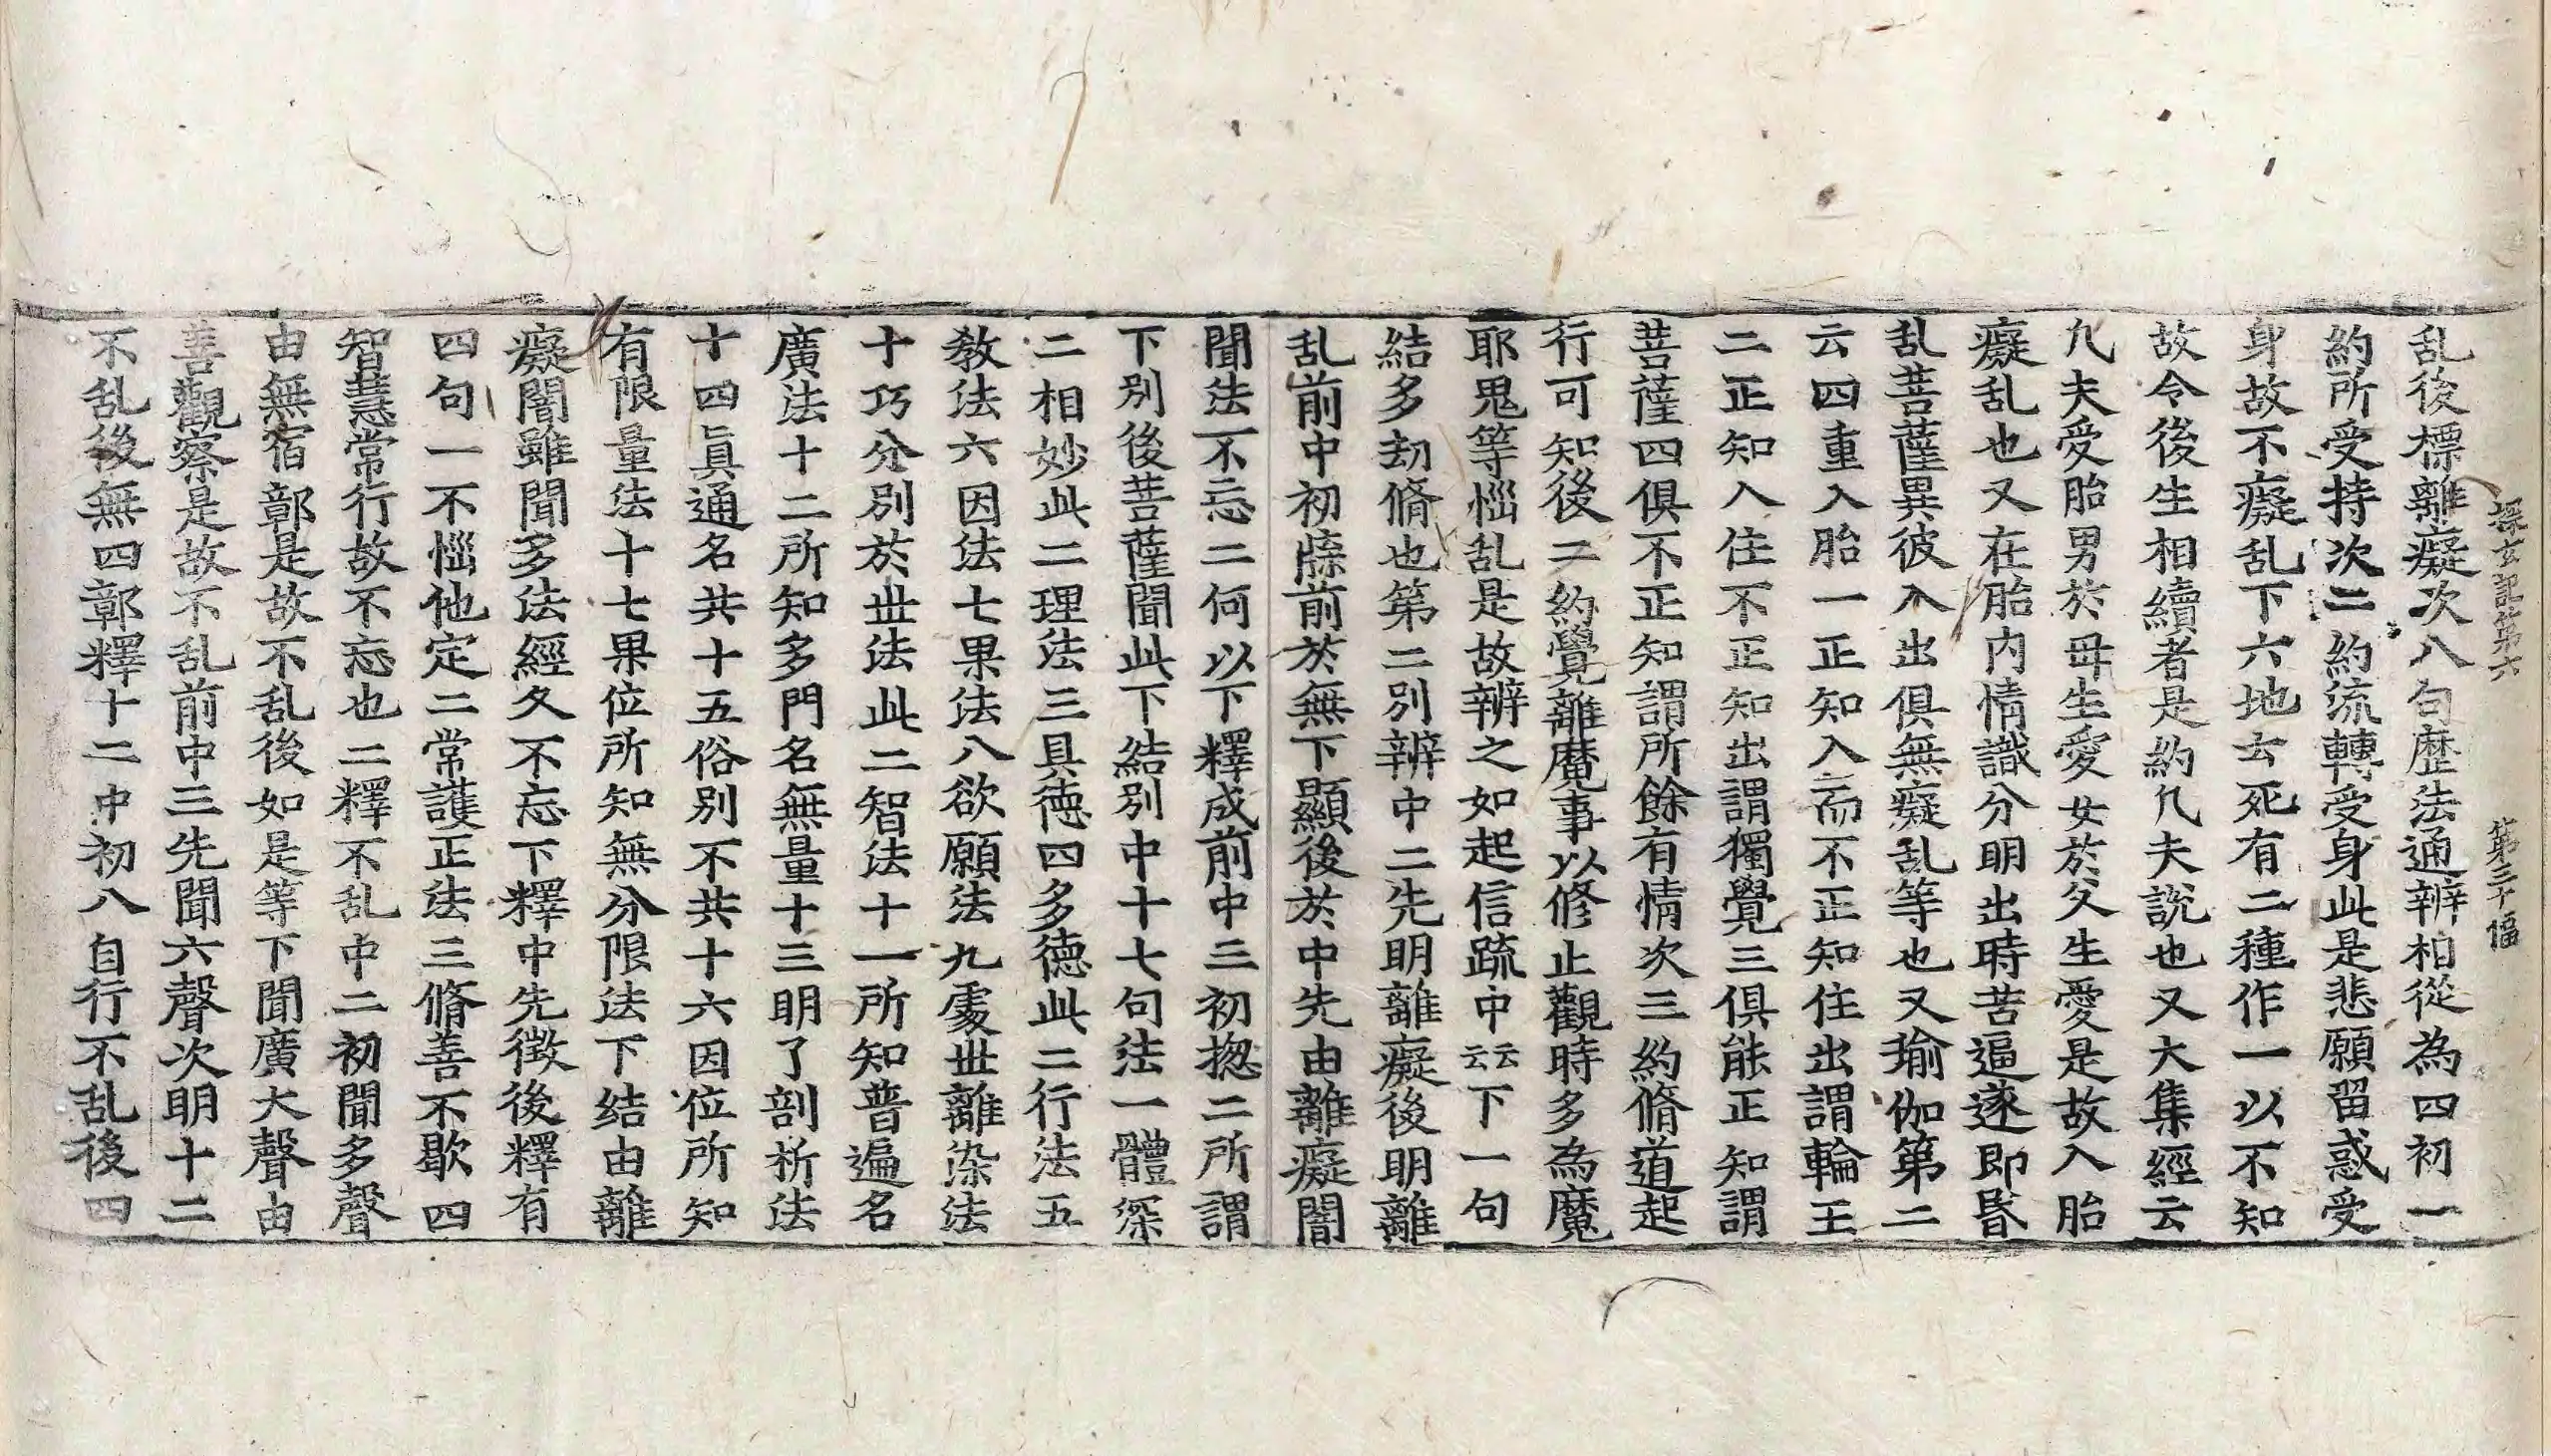 探玄記第六 第三十幅
乱後標離癡次八句歷法通辨相從為四初一
約所受持次二約流轉受身此是悲願留惑受
身故不癡乱下六地云死有二種作一以不知
故令後生相續者是約凡夫說也又大集經云
凡夫受胎男於母生愛女於父生愛是故入胎
癡乱也又在胎內情識分明出時苦逼逐即昏
乱菩薩異彼入出俱無癡乱等也又瑜伽第二
云四重入胎一正知入而不正知住出謂輪王
二正知入住不正知出謂獨覺三俱能正知謂
菩薩四俱不正知謂所餘有情次三約脩道起
行可知後二約覺離魔事以修止觀時多為魔
耶鬼等惱乱是故辨之如起信疏中云云下一句
結多劫脩也第二別辨中二先明離癡後明離
乱前中初牒前於無下顯後於中先由離癡闇
聞法不忘二何以下釋成前中三初揔二所謂
下別後菩薩聞此下結別中十七句法一體深
二相妙此二理法三具德四多德此二行法五
教法六因法七果法八欲願法九處世離染法
十巧分別於世法此二智法十一所知普遍名
廣法十二所知多門名無量十三明了剖析法
十四眞通名共十五俗別不共十六因位所知
有限量法十七果位所知無分限法下结由離
癡闇雖聞多法經久不忘下釋中先徵後釋有
四句一不惱他定二常護正法三脩善不歇四
智慧常行故不忘也二釋不乱中二初聞多聲
由無宿鄣是故不乱後如是等下聞廣大聲由
善觀察是故不乱前中三先聞六聲次明十二
不乱後無四鄣釋十二中初八自行不乱後四